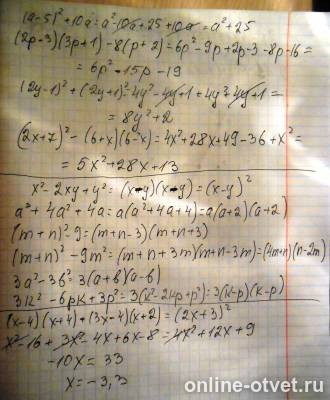 (a-5)²+10a=a²-10a+25+10a=a²+25
(2p-3)(3p+1)-8(p+2)=6p²-9p+2p-3-8p-16=
=6p²-15p-19
(2y-1)²+(2y+1)²=4y²-4y+1+4y²+4y+1=
=8y²+2
(2x+7)²-(6+x)(6-x)=4x²+28x+49-36+x²=
=5x²+28x+13
x²-2xy+y²=(x-y)(x-y)=(x-y)²
a³+4a²+4a=a(a²+4a+4)=a(a+2)(a+2)
(m+n)²-9=(m+n-3)(m+n+3)
(m+n)²-9m²=(m+n+3m)(m+n-3m)=(4m+n)(n-2m)
3a²-3b²=3(a+b)(a-b)
3k²-6pk+3p²=3(k²-2kp+p²)=3(k-p)(k-p)
(x-4)(x+4)+(3x-4)(x+2)=(2x+3)²
x²-16+3x²-4x+6x-8=4x²+12x+9
-10x=33
x=-3,3
online-otvet.ru